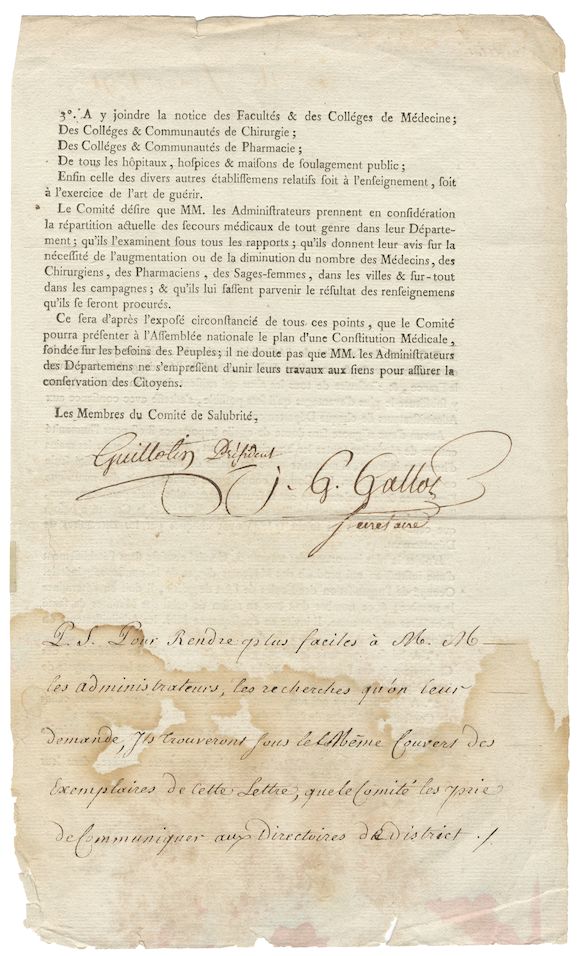 3°. A y joindre la notice des Facultés & des Colléges de Médecine;
Des Colléges & Communautés de Chirurgie;
Des Colléges & Communautés de Pharmacie;
De tous les hôpitaux, hospices & maisons de soulagement public;
Enfin celle des divers autres établissemens relatifs soit à l'enseignement, soit
à l'exercice de l'art de guérir.
Le Comité désire que MM. les Administrateurs prennent en considération
la répartition actuelle des secours médicaux de tout genre dans leur Départe-
ment; qu'ils l'examinent sous tous les rapports; qu'ils donnent leur avis sur la
nécessité de l'augmentation ou de la diminution du nombre des Médecins, des
Chirurgiens, des Pharmaciens, des Sages-femmes, dans les villes & sur-tout
dans les campagnes; & qu'ils lui fassent parvenir le résultat des renseignemens
qu'ils se seront procurés.
Ce sera d'après l'exposé circonstancié de tous ces points, que le Comité
pourra présenter à l'Assemblée nationale le plan d'une Constitution Médicale,
fondée sur les besoins des Peuples; il ne doute pas que MM. les Administrateurs
des Départemens ne s'empressent d'unir leurs travaux aux siens pour assurer la
conservation des Citoyens.
Les Membres du Comité de Salubrité,
Guillotin Président
J. G. Gallot
Secretaire
P. S. Pour Rendre plus faciles à M. M
les administrateurs, les recherches qu'on leur
demande, Ils trouveront sous le Même Couvert des
Exemplaires de Cette Lettre, que le Comité les prie
de Communiquer aux Directoires de District ./